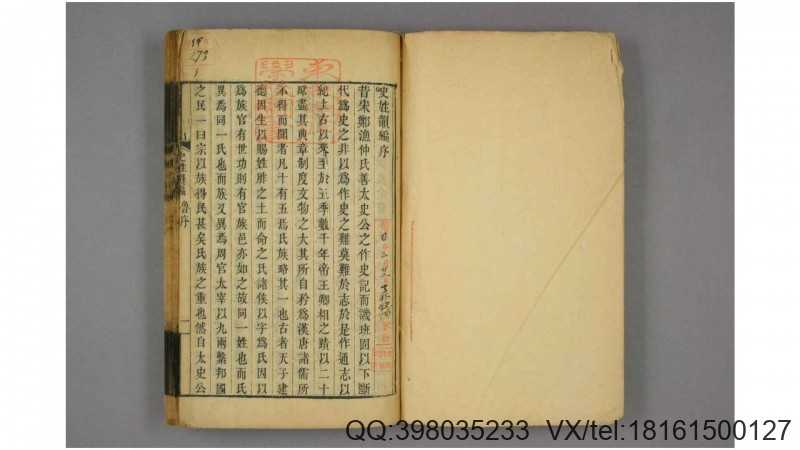 史姓韻編序
昔宋鄭漁仲氏善太史公之作史記而譏班固以下斷
代爲史之非以爲作史之難莫難於志於是作通志以
紀上古以來至於五季數千年帝王卿相之蹟以二十
略盡其典章制度文物之大其所自矜爲漢唐諸儒所
不得而聞者凡十有五焉氏族略其一也古者天子建
德因生以賜姓胙之土而命之氏諸侯以字爲氏因以
爲族官有世功則有官族邑亦如之故同一姓也而氏
異焉同一氏也而族又異焉周官太宰以九兩繫邦國
之民一曰宗以族得民甚矣氏族之重也然自太史公
魯序
一
QQ:398035233 VX/tel:18161500127